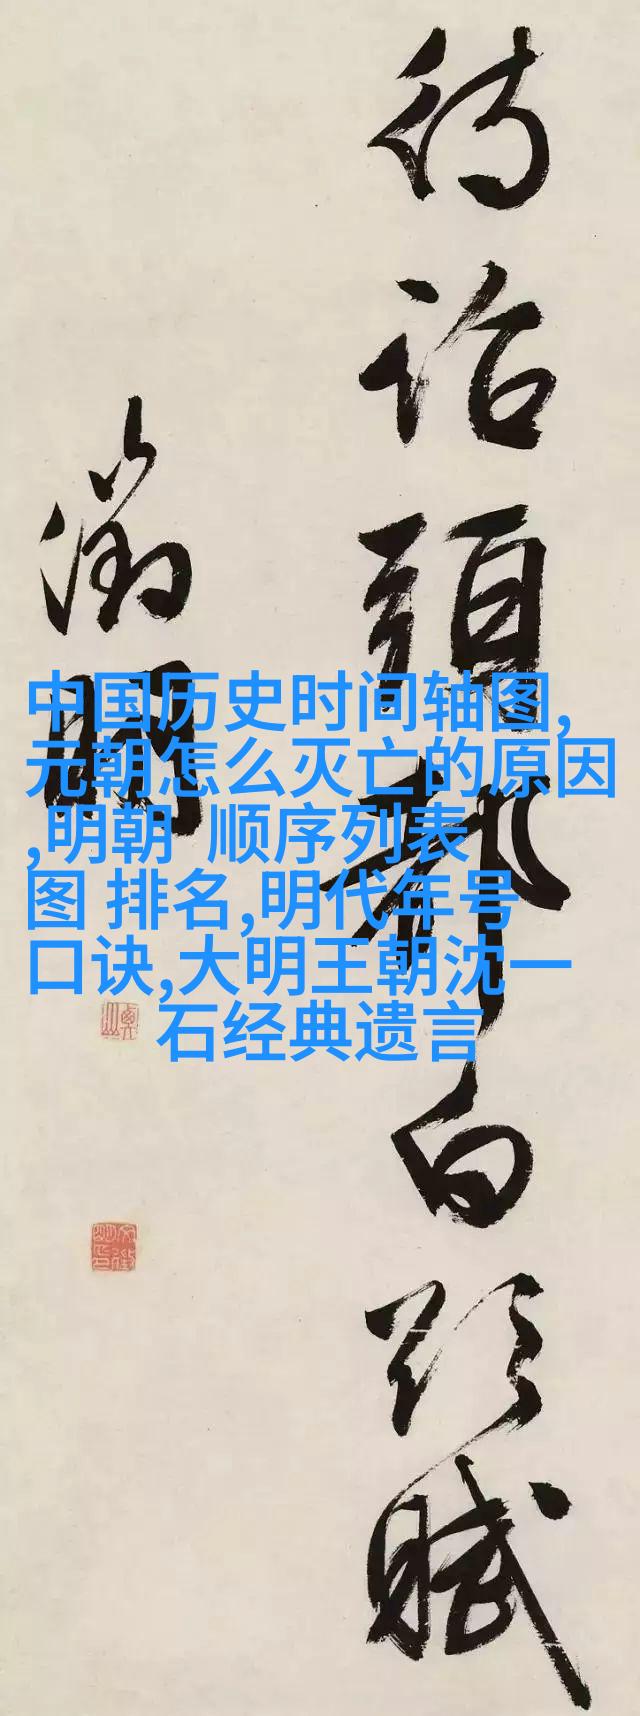 待诏頭都白頭賦
徵明
中国历史时间轴图,
元朝怎么灭亡的原因
,明朝 顺序列表
图 排名,明代年号
口诀,大明王朝沈一
石经典遗言